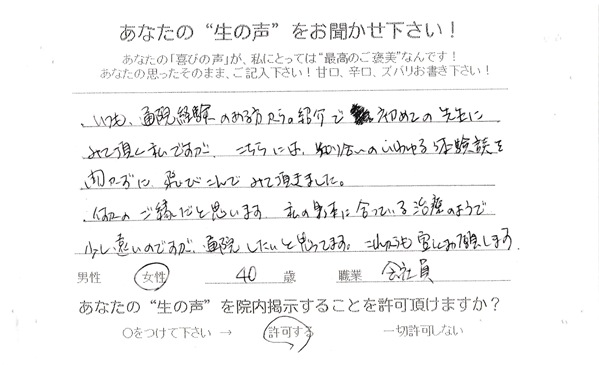 あなたの“生の声”をお聞かせ下さい！
あなたの「喜びの声」が、私にとっては“最高のご褒美”なんです！
あなたの思ったそのまま、ご記入下さい！甘口、辛口、ズバリお書き下さい！
、いつも、通院経験のある方からの紹介で 初めての先生に
みて頂く私ですが、こちらには、知り合いのいわゆる体験談を
聞かずに飛びこんでみて頂きました。
、何かのご縁だと思います。私の身体に合っている治療のようで
少し遠いのですが、通院したいと思ってます。これからも宜しくお願いします
男性 女性 40 歳 職業 会社員
あなたの“生の声”を院内掲示することを許可頂けますか？
○をつけて下さい → 許可する 一切許可しない